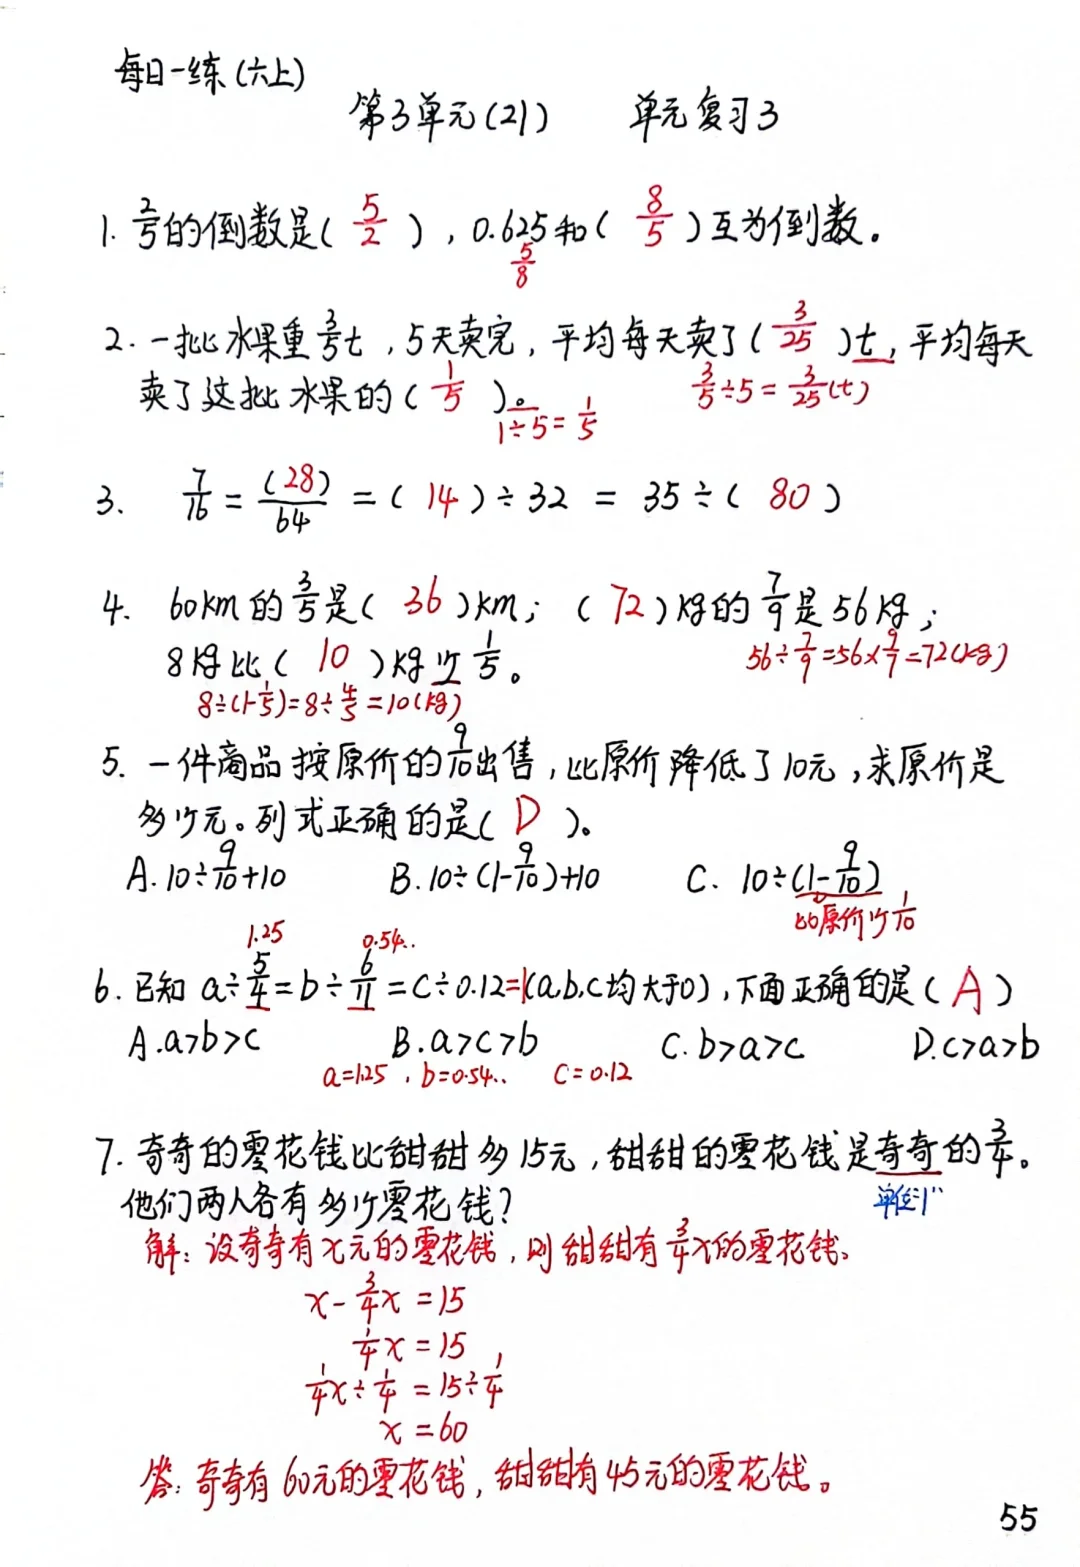 每日一练(六上)
第3单元(21) 单元复习3
1. 2/5的倒数是( 5/2 ), 0.625和( 8/5 )互为倒数。
5/8
2. 一批水果重3/5t, 5天卖完, 平均每天卖了( 3/25 )t, 平均每天
卖了这批水果的( 1/5 )。 3/5÷5=3/25(t)
1÷5=1/5
3. 7/16=(28)/64=( 14 )÷32=35÷( 80 )
4. 60km的3/5是( 36 )km; ( 72 )kg的7/9是56kg;
8kg比( 10 )kg少1/5。 56÷7/9=56×9/7=72(kg)
8÷(1-1/5)=8÷4/5=10(kg)
5. 一件商品按原价的9/10出售, 比原价降低了10元, 求原价是
多少元。列式正确的是( D )。
A. 10÷9/10+10 B. 10÷(1-9/10)+10 C. 10÷(1-9/10)
比原价少1/10
1.25 0.54..
6. 已知 a÷5/4=b÷6/11=c÷0.12=1(a,b,c均大于0), 下面正确的是( A )
A. a>b>c B. a>c>b C. b>a>c D. c>a>b
a=1.25, b=0.54.. c=0.12
7. 奇奇的零花钱比甜甜多15元, 甜甜的零花钱是奇奇的3/4。
他们两人各有多少零花钱? 单位"1"
解: 设奇奇有x元的零花钱, 则甜甜有3/4x的零花钱。
x-3/4x=15
1/4x=15
1/4x÷1/4=15÷1/4
x=60
答: 奇奇有60元的零花钱, 甜甜有45元的零花钱。
55